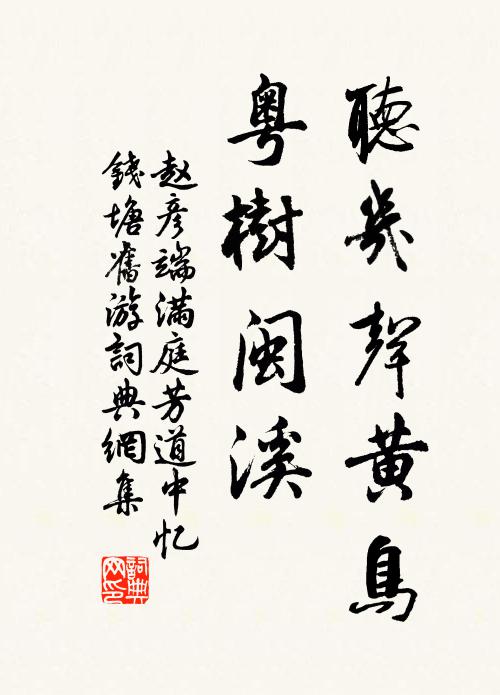 聽幾聲黃鳥
粵樹閩溪
赵彦端满庭芳道中忆
錢塘舊游詞典網集
詞典网印